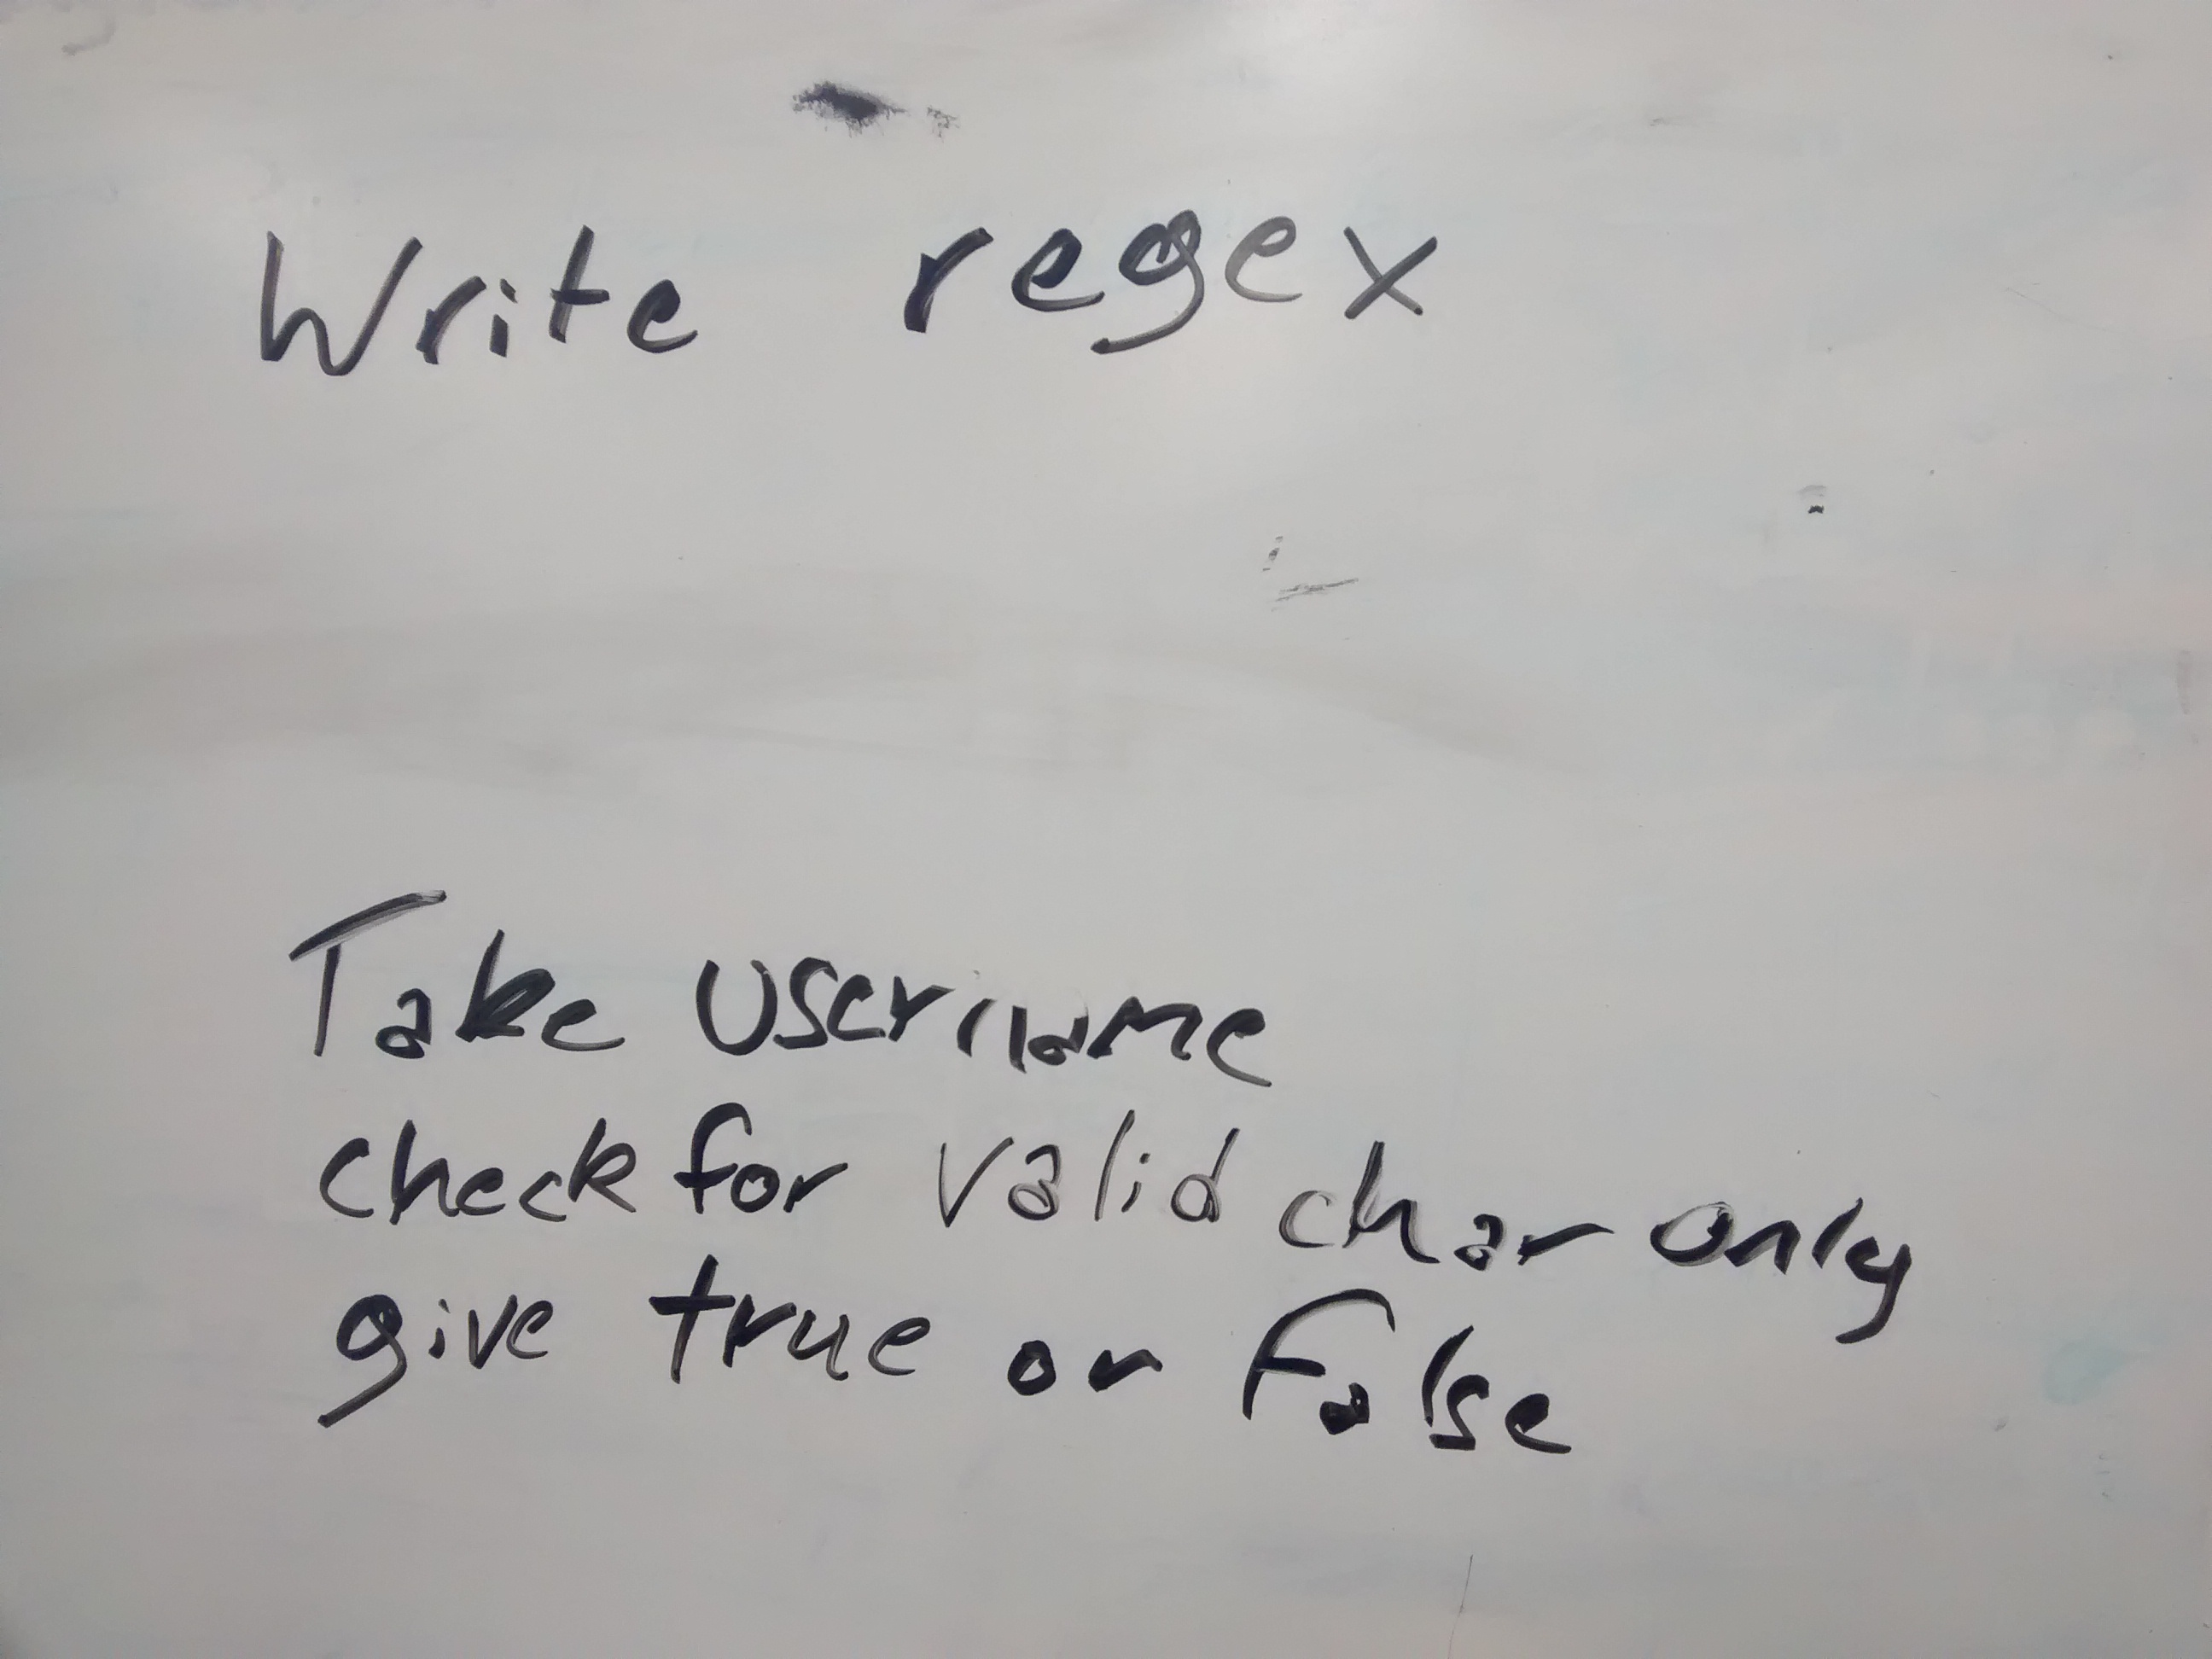 Write regex
Take username
check for valid char only
give true or False